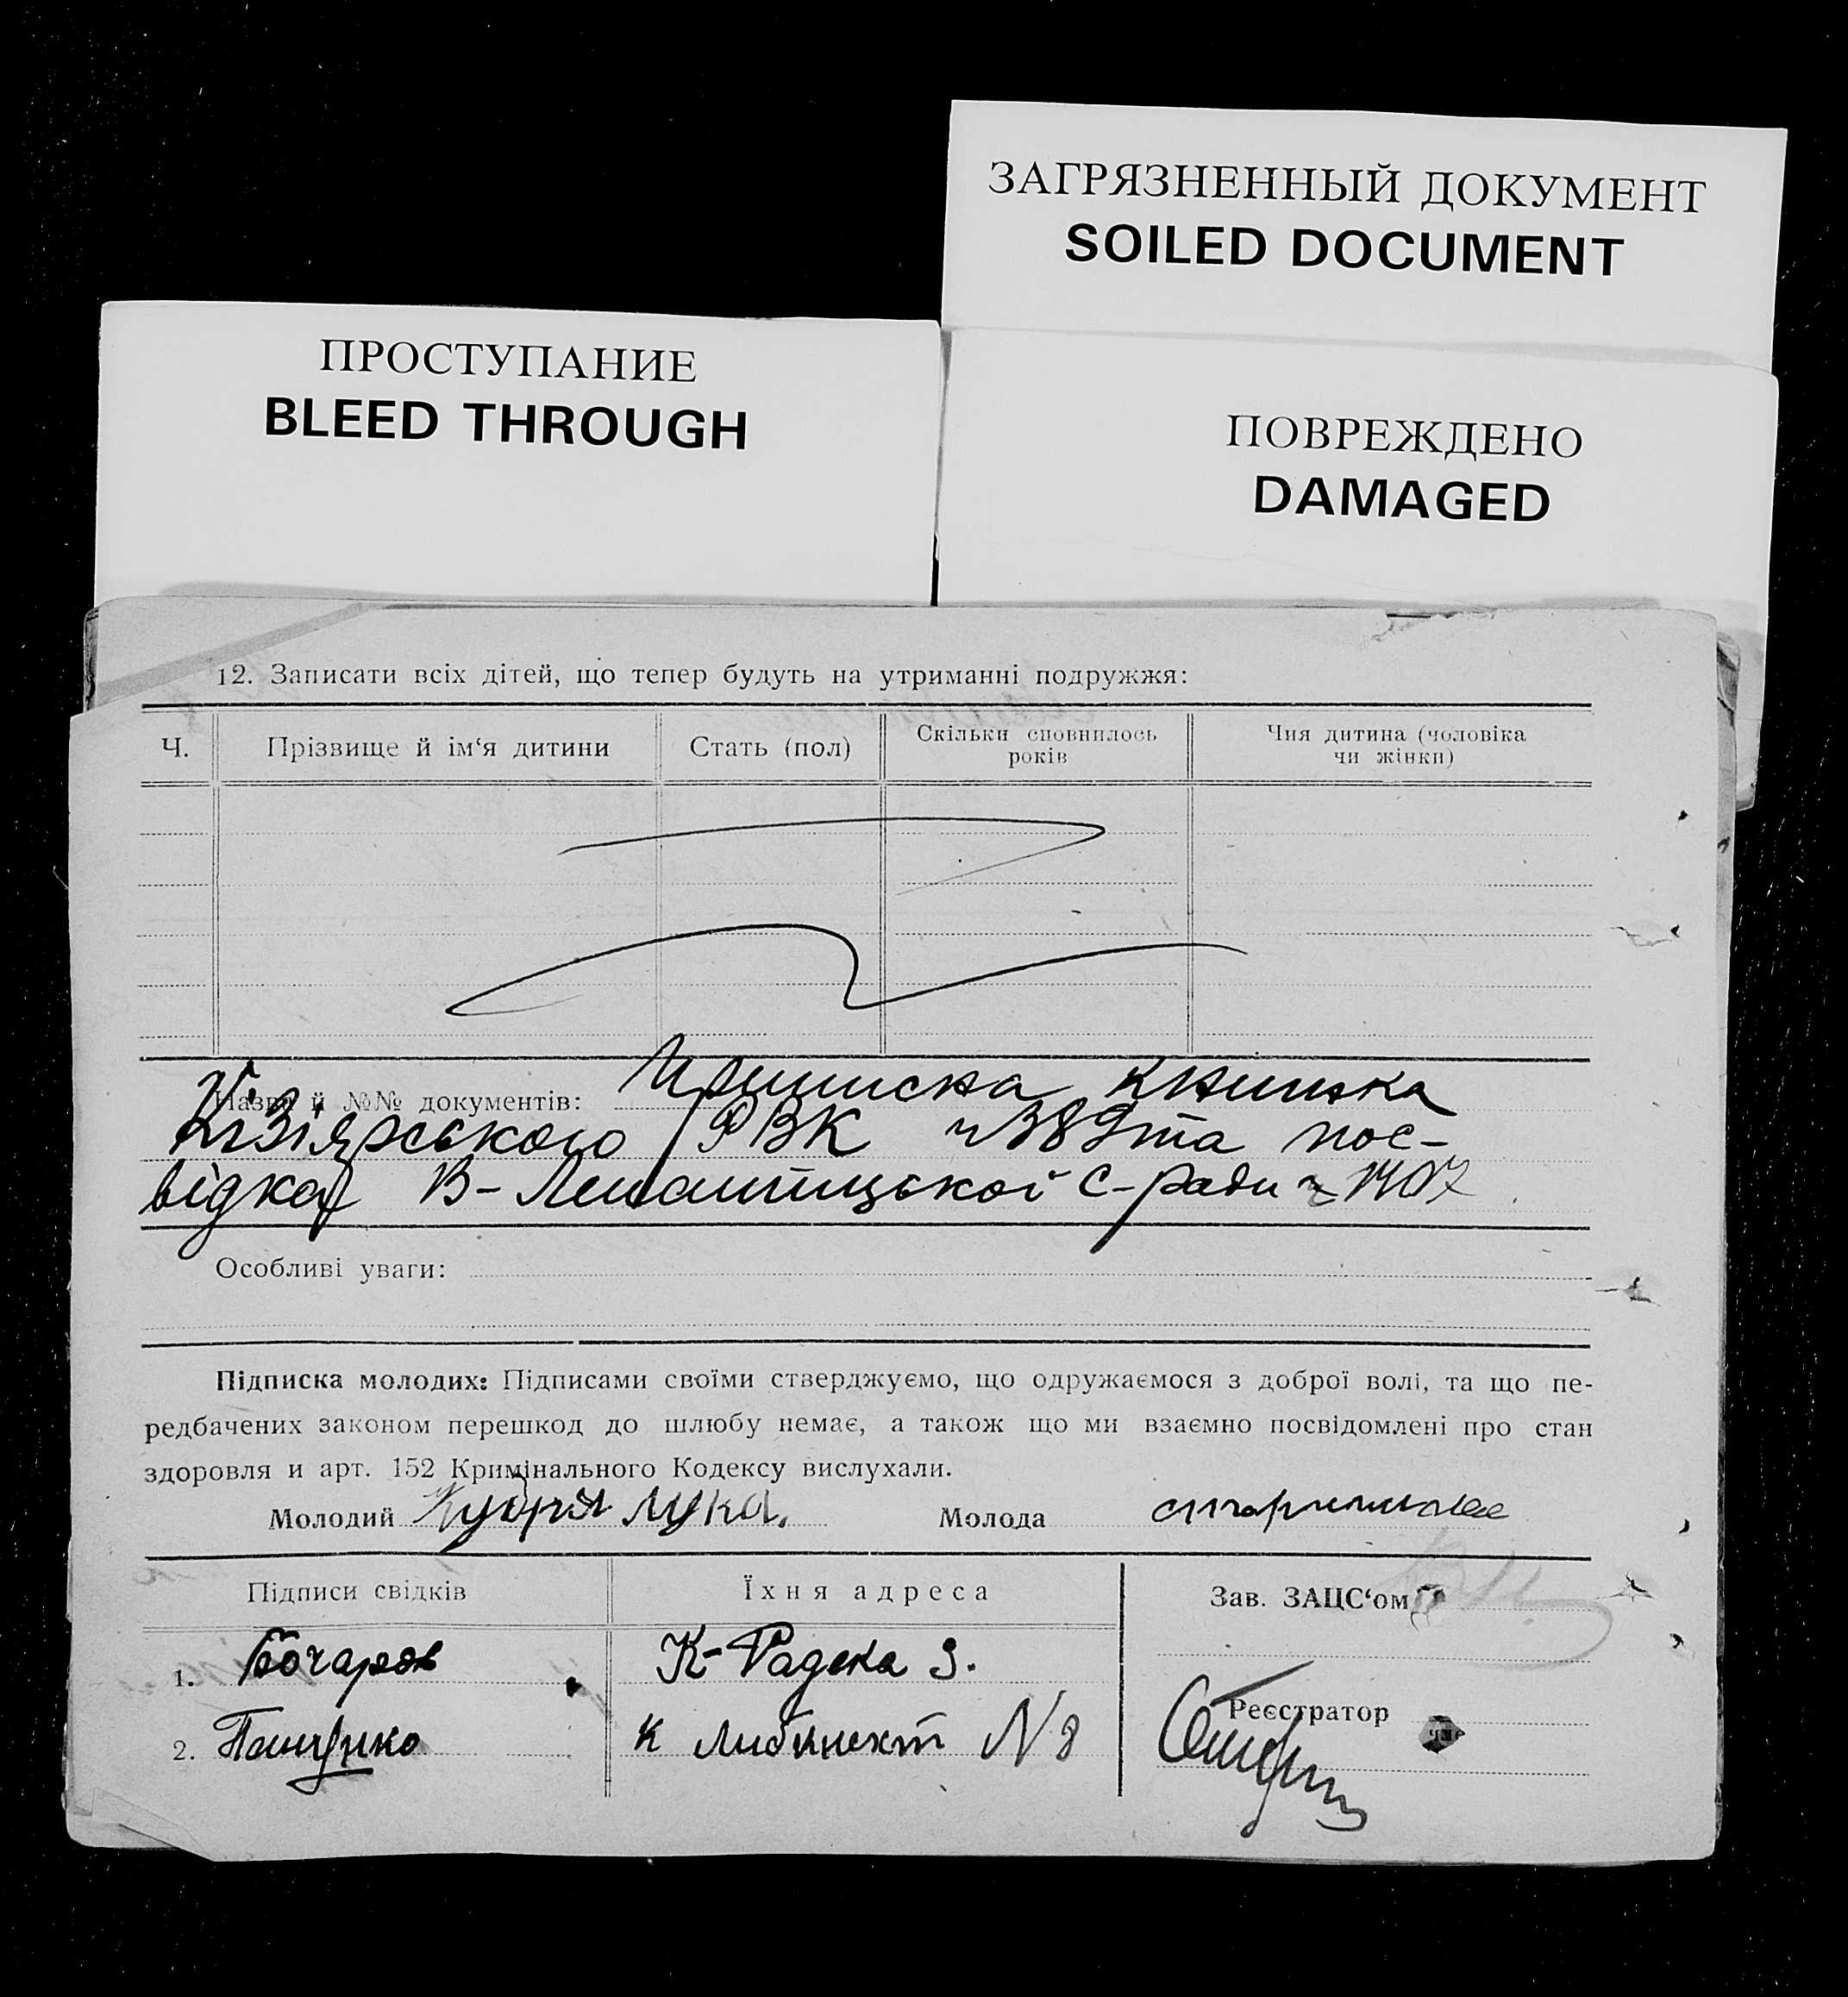 ЗАГРЯЗНЕННЫЙ ДОКУМЕНТ
SOILED DOCUMENT
ПРОСТУПАНИЕ
BLEED THROUGH
ПОВРЕЖДЕНО
DAMAGED
12. Записати всіх дітей, що тепер будуть на утриманні подружжя:
Ч.
Прізвище й ім‘я дитини
Стать (пол)
Скільки сповнилось
років
Чия дитина (чоловіка
чи жінки)
Назва й №№ документів: Приписна книжка
РВК та пос-
відка В- с-ради
Особливі уваги:
Підписка молодих: Підписами своїми стверджуємо, що одружаємося з доброї волі, та що пе-
редбачених законом перешкод до шлюбу немає, а також що ми взаємно посвідомлені про стан
здоровля и арт. 152 Кримінального Кодексу вислухали.
Молодий Лука.
Молода
Підписи свідків
Їхня адреса
Зав. ЗАЦС‘ом
1. Бочаров
К-Радека 9.
Реєстратор
2.
К Либкнехт N 8